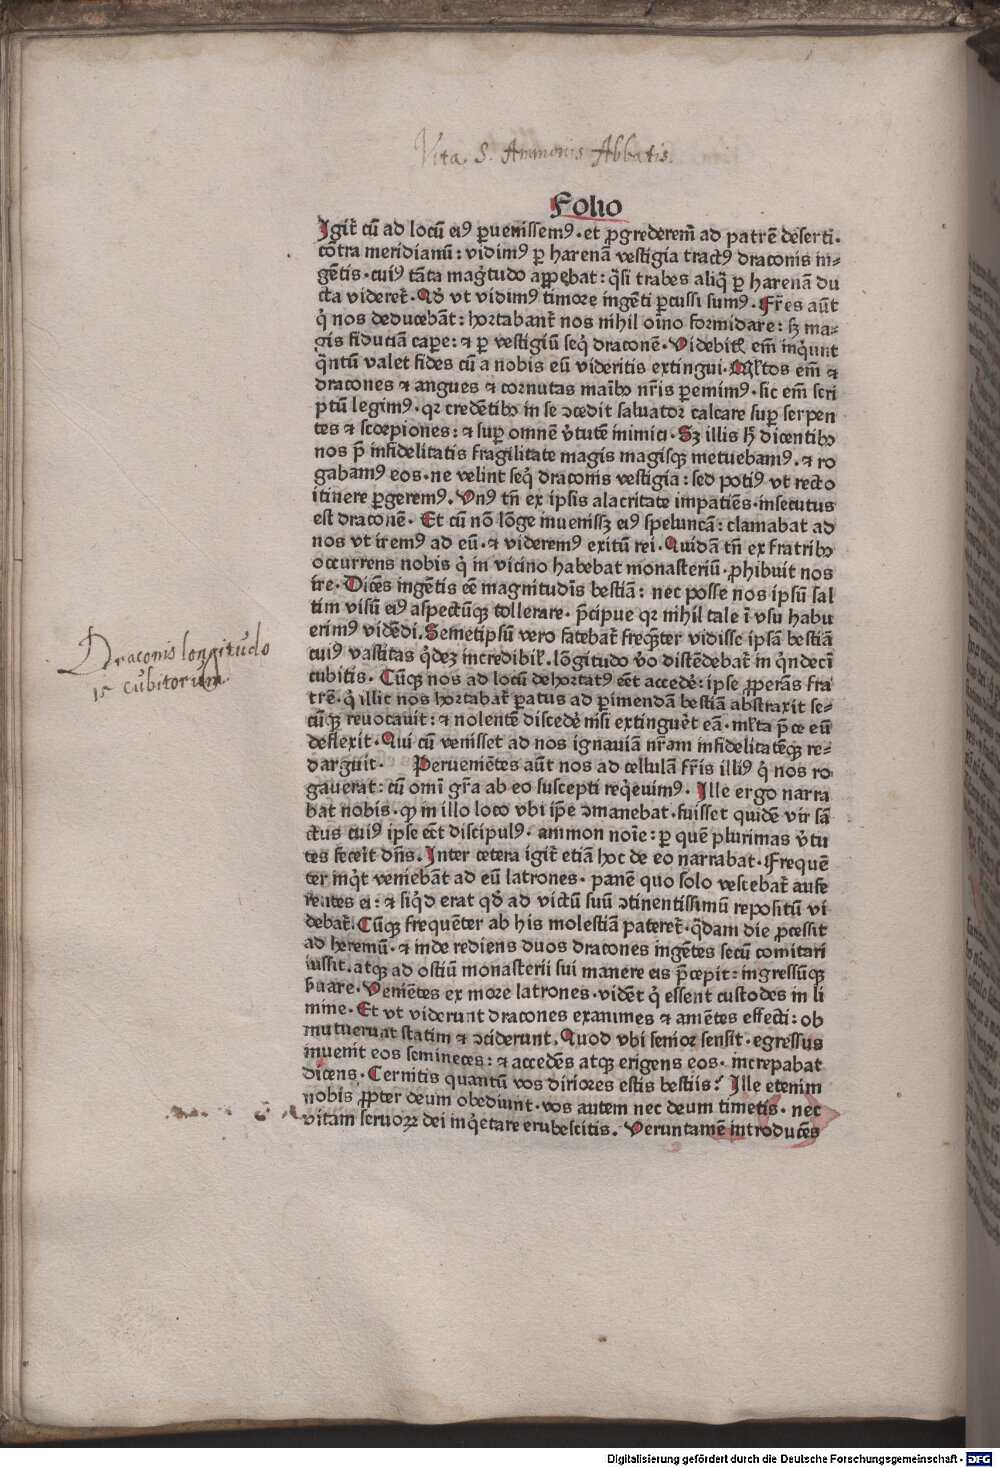 Vita S. Ammonis Abbatis.
Folio
Igit̃ cũ ad locũ eiꝰ ꝑuenissemꝰ. et ꝓgrederem̃ ad patrẽ deserti.
cõtra meridianũ: vidimꝰ ꝑ harenã vestigia tractꝰ draconis in⸗
gẽtis. cuiꝰ tãta magĩtudo apꝑebat: q̃si trabes aliq̃ ꝑ harenã du
cta videret̃. Qđ vt vidimꝰ timore ingẽti ꝑcussi sumꝰ. Fr̃es aũt
q̇ nos deducebãt: hortabant̃ nos nihil oĩno formidare: sꝫ ma⸗
gis fiduciã caꝑe: ⁊ ꝑ vestigiũ seq̇ draconẽ. Videbit̃ em̃ inq̇unt
q̃ntũ valet fides cũ a nobis eũ videritis extingui. Ml̃tos em̃ ⁊
dracones ⁊ angues ⁊ cornutas maĩbꝫ nr̃is ꝑemimꝰ. sic em̃ scri
ptũ legimꝰ. qꝛ credẽtibꝫ in se ↄcedit saluator calcare suꝑ serpen
tes ⁊ scorpiones: ⁊ suꝑ omnẽ v̓tutẽ inimici. Sꝫ illis h̃ dicentibꝫ
nos p̃ infidelitatis fragilitate magis magisqꝫ metuebamꝰ. ⁊ ro
gabamꝰ eos. ne velint seq̇ draconis vestigia: sed potiꝰ vt recto
itinere ꝑgeremꝰ. Vnꝰ tñ ex ipsis alacritate impatiẽs. insecutus
est draconẽ. Et cũ nõ lõge inuenissꝫ eiꝰ speluncã: clamabat ad
nos vt iremꝰ ad eũ. ⁊ videremꝰ exitũ rei. Quidã tñ ex fratribꝫ
occurrens nobis q̇ in vicino habebat monasteriũ. ꝓhibuit nos
ire. Dicẽs ingẽtis eẽ magnitudĩs bestiã: nec posse nos ipsũ sal
tim visũ eiꝰ aspectũqꝫ tollerare. p̃cipue qꝛ nihil tale ĩ vsu habu
erimꝰ vidẽdi. Semetipsũ vero fatebat̃ freq̃ter vidisse ipsã bestiã
cuiꝰ vastitas q̇deꝫ incredibil̓. lõgitudo v̓o distẽdebat̃ in q̇ndeci
cubitis. Cũqꝫ nos ad locũ dehortatꝰ eẽt accedẽ: ipse ꝓꝑãs fra
trẽ. q̇ illic nos hortabat̃ ꝑatus ad ꝑimendã bestiã abstraxit se⸗
cũqꝫ reuocauit: ⁊ nolentẽ discedẽ nisi extinguẽt eã. ml̃ta p̃ce eũ
deflexit. Qui cũ venisset ad nos ignauiã nr̃am infidelitatẽqꝫ re⸗
darguit. Perueniẽtes aũt nos ad cellulã fr̃is illiꝰ q̇ nos ro
gauerat: cũ omĩ gr̃a ab eo suscepti req̇euimꝰ. Ille ergo narra
bat nobis. ꝙ in illo loco vbi ip̃e ↄmanebat. fuisset quidẽ vir sã
ctus cuiꝰ ipse eẽt discipulꝰ. ammon noĩe: ꝑ quẽ plurimas v̓tu
tes feceĩt dñs. Inter cetera igit̃ etiã hoc de eo narrabat. Frequẽ
ter inq̇t veniebãt ad eũ latrones. panẽ quo solo vescebat̃ aufe
rentes ei: ⁊ siq̇d erat qđ ad victũ suũ ↄtinentissimũ repositũ vi
debat̃. Cũqꝫ frequẽter ab his molestiã pateret̃. q̃dam die ꝓcessit
ad heremũ. ⁊ inde rediens duos dracones ingẽtes secũ comitari
iussit. atqꝫ ad ostiũ monasterii sui manere eis p̃cepit: ingressũqꝫ
ẜuare. Veniẽtes ex more latrones. vidẽt q̇ essent custodes in li
mine. Et vt viderunt dracones exanimes ⁊ amẽtes effecti: ob
mutuerunt statim ⁊ ↄciderunt. Quod vbi senior sensit. egressus
inuenit eos semineces: ⁊ accedẽs atqꝫ erigens eos. increpabat
dicens. Cernitis quantũ vos diriores estis bestiis? Ille etenim
nobis ꝓpter deum obediunt. vos autem nec deum timetis. nec
vitam seruoꝝ dei inq̇etare erubescitis. Veruntamẽ introducẽs
Draconis longitudo
15 cubitorum.
Digitalisierung gefördert durch die Deutsche Forschungsgemeinschaft - DFG